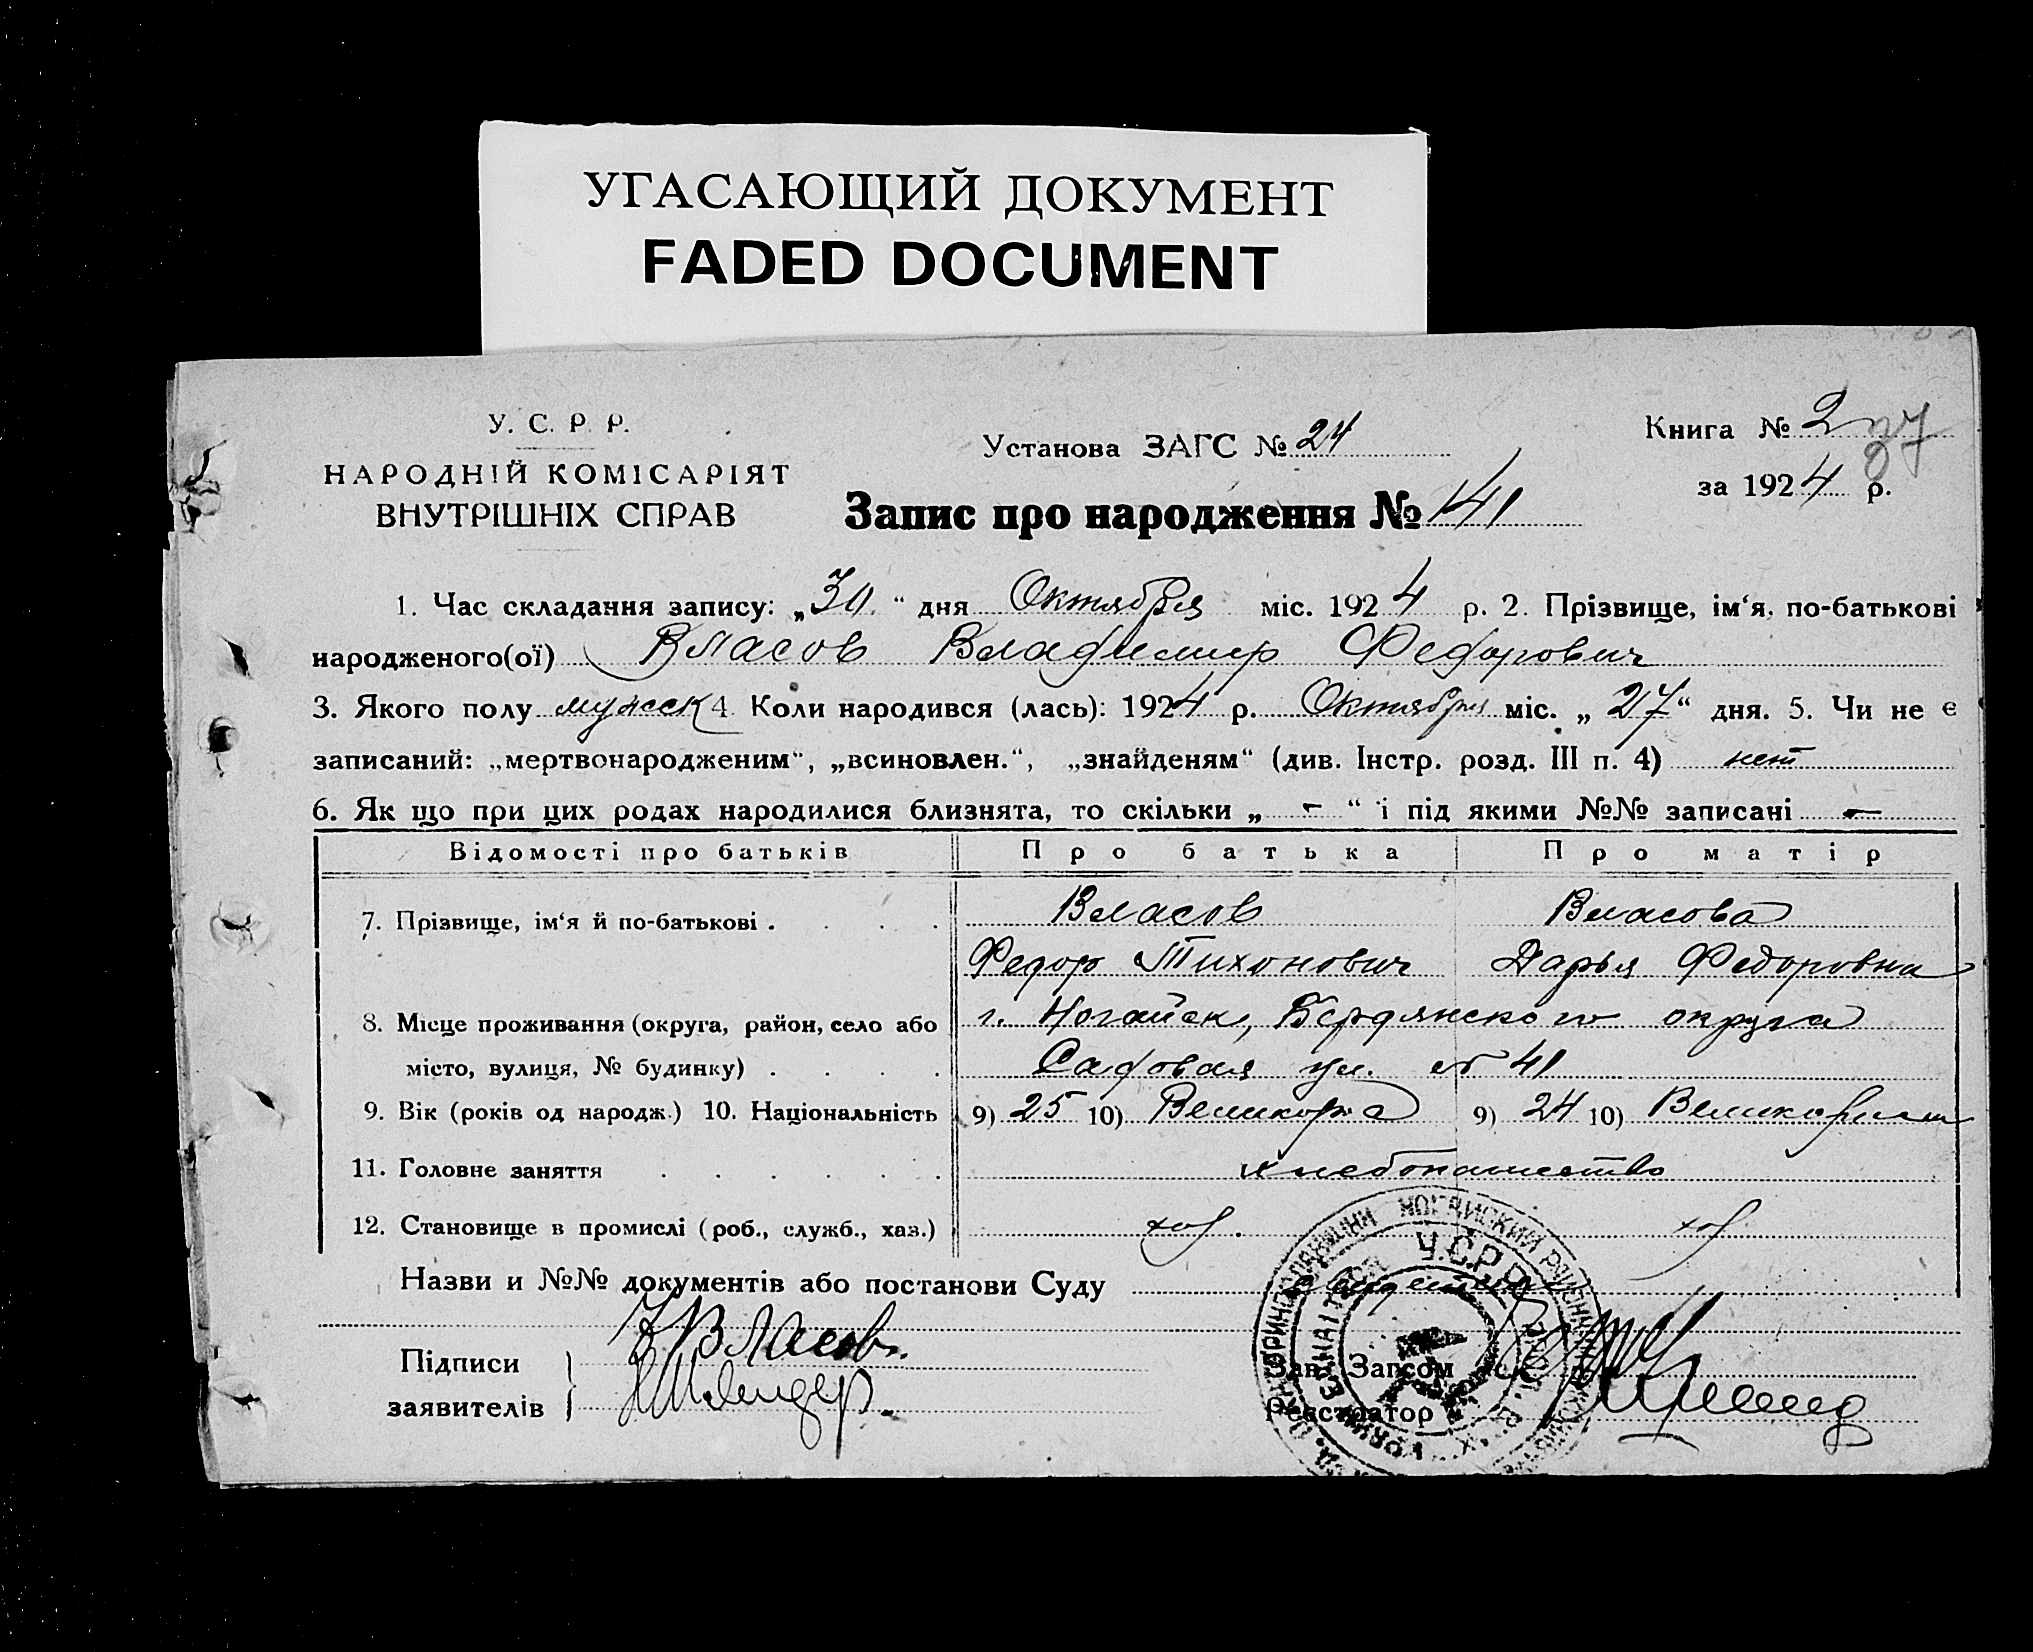 УГАСАЮЩИЙ ДОКУМЕНТ
FADED DOCUMENT
У. С. Р. Р.
НАРОДНІЙ КОМІСАРІЯТ
ВНУТРІШНІХ СПРАВ
Установа ЗАГС № 24
Книга № 2
за 1924 р.
Запис про народження № 141
1. Час складання запису: „30“ дня Октября міс. 1924 р. 2. Прізвище, ім‘я, по-батькові
народженого(ої) Власов Владимир Федорович
3. Якого полу мужск 4. Коли народився (лась): 1924 р. Октября міс. „27“ дня. 5. Чи не є
записаний: „мертвонародженим“, „всиновлен.“, „знайденям“ (див. Інстр. розд. III п. 4) нет
6. Як що при цих родах народилися близнята, то скільки „ - “ і під якими №№ записані -
Відомості про батьків Про батька Про матір
7. Прізвище, ім‘я й по-батькові . Власов Власова
Федор Тихонович Дарья Федоровна
8. Місце проживання (округа, район, село або г. Ногайск, Бердянского округа
місто, вулиця, № будинку) Садовая ул. № 41
9. Вік (років од народж.) 10. Національність 9) 25 10) 9) 24 10)
11. Головне заняття хлебопашество
12. Становище в промислі (роб., служб., хаз.) хоз. хоз
Назви и №№ документів або постанови Суду
Підписи Власов. Зав. Загсом
заявителів Реєстратор
У.С.Р.Р.